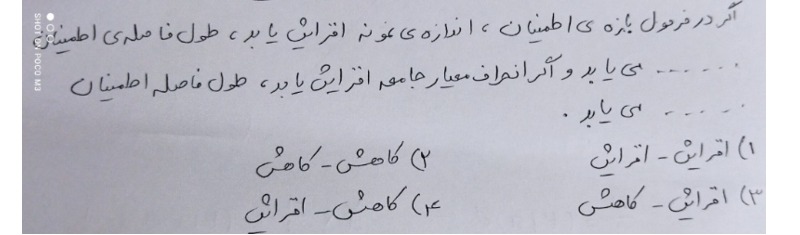 اگر در فرمول بازه ی اطمینان ، اندازه ی نمونه افزایش یابد ، طول فاصله ی اطمینان
...... می یابد و اگر انحراف معیار جامعه افزایش یابد ، طول فاصله اطمینان
...... می یابد .
۱) افزایش - افزایش ۲) کاهش - کاهش
۳) افزایش - کاهش ۴) کاهش - افزایش
SHOT ON POCO M3